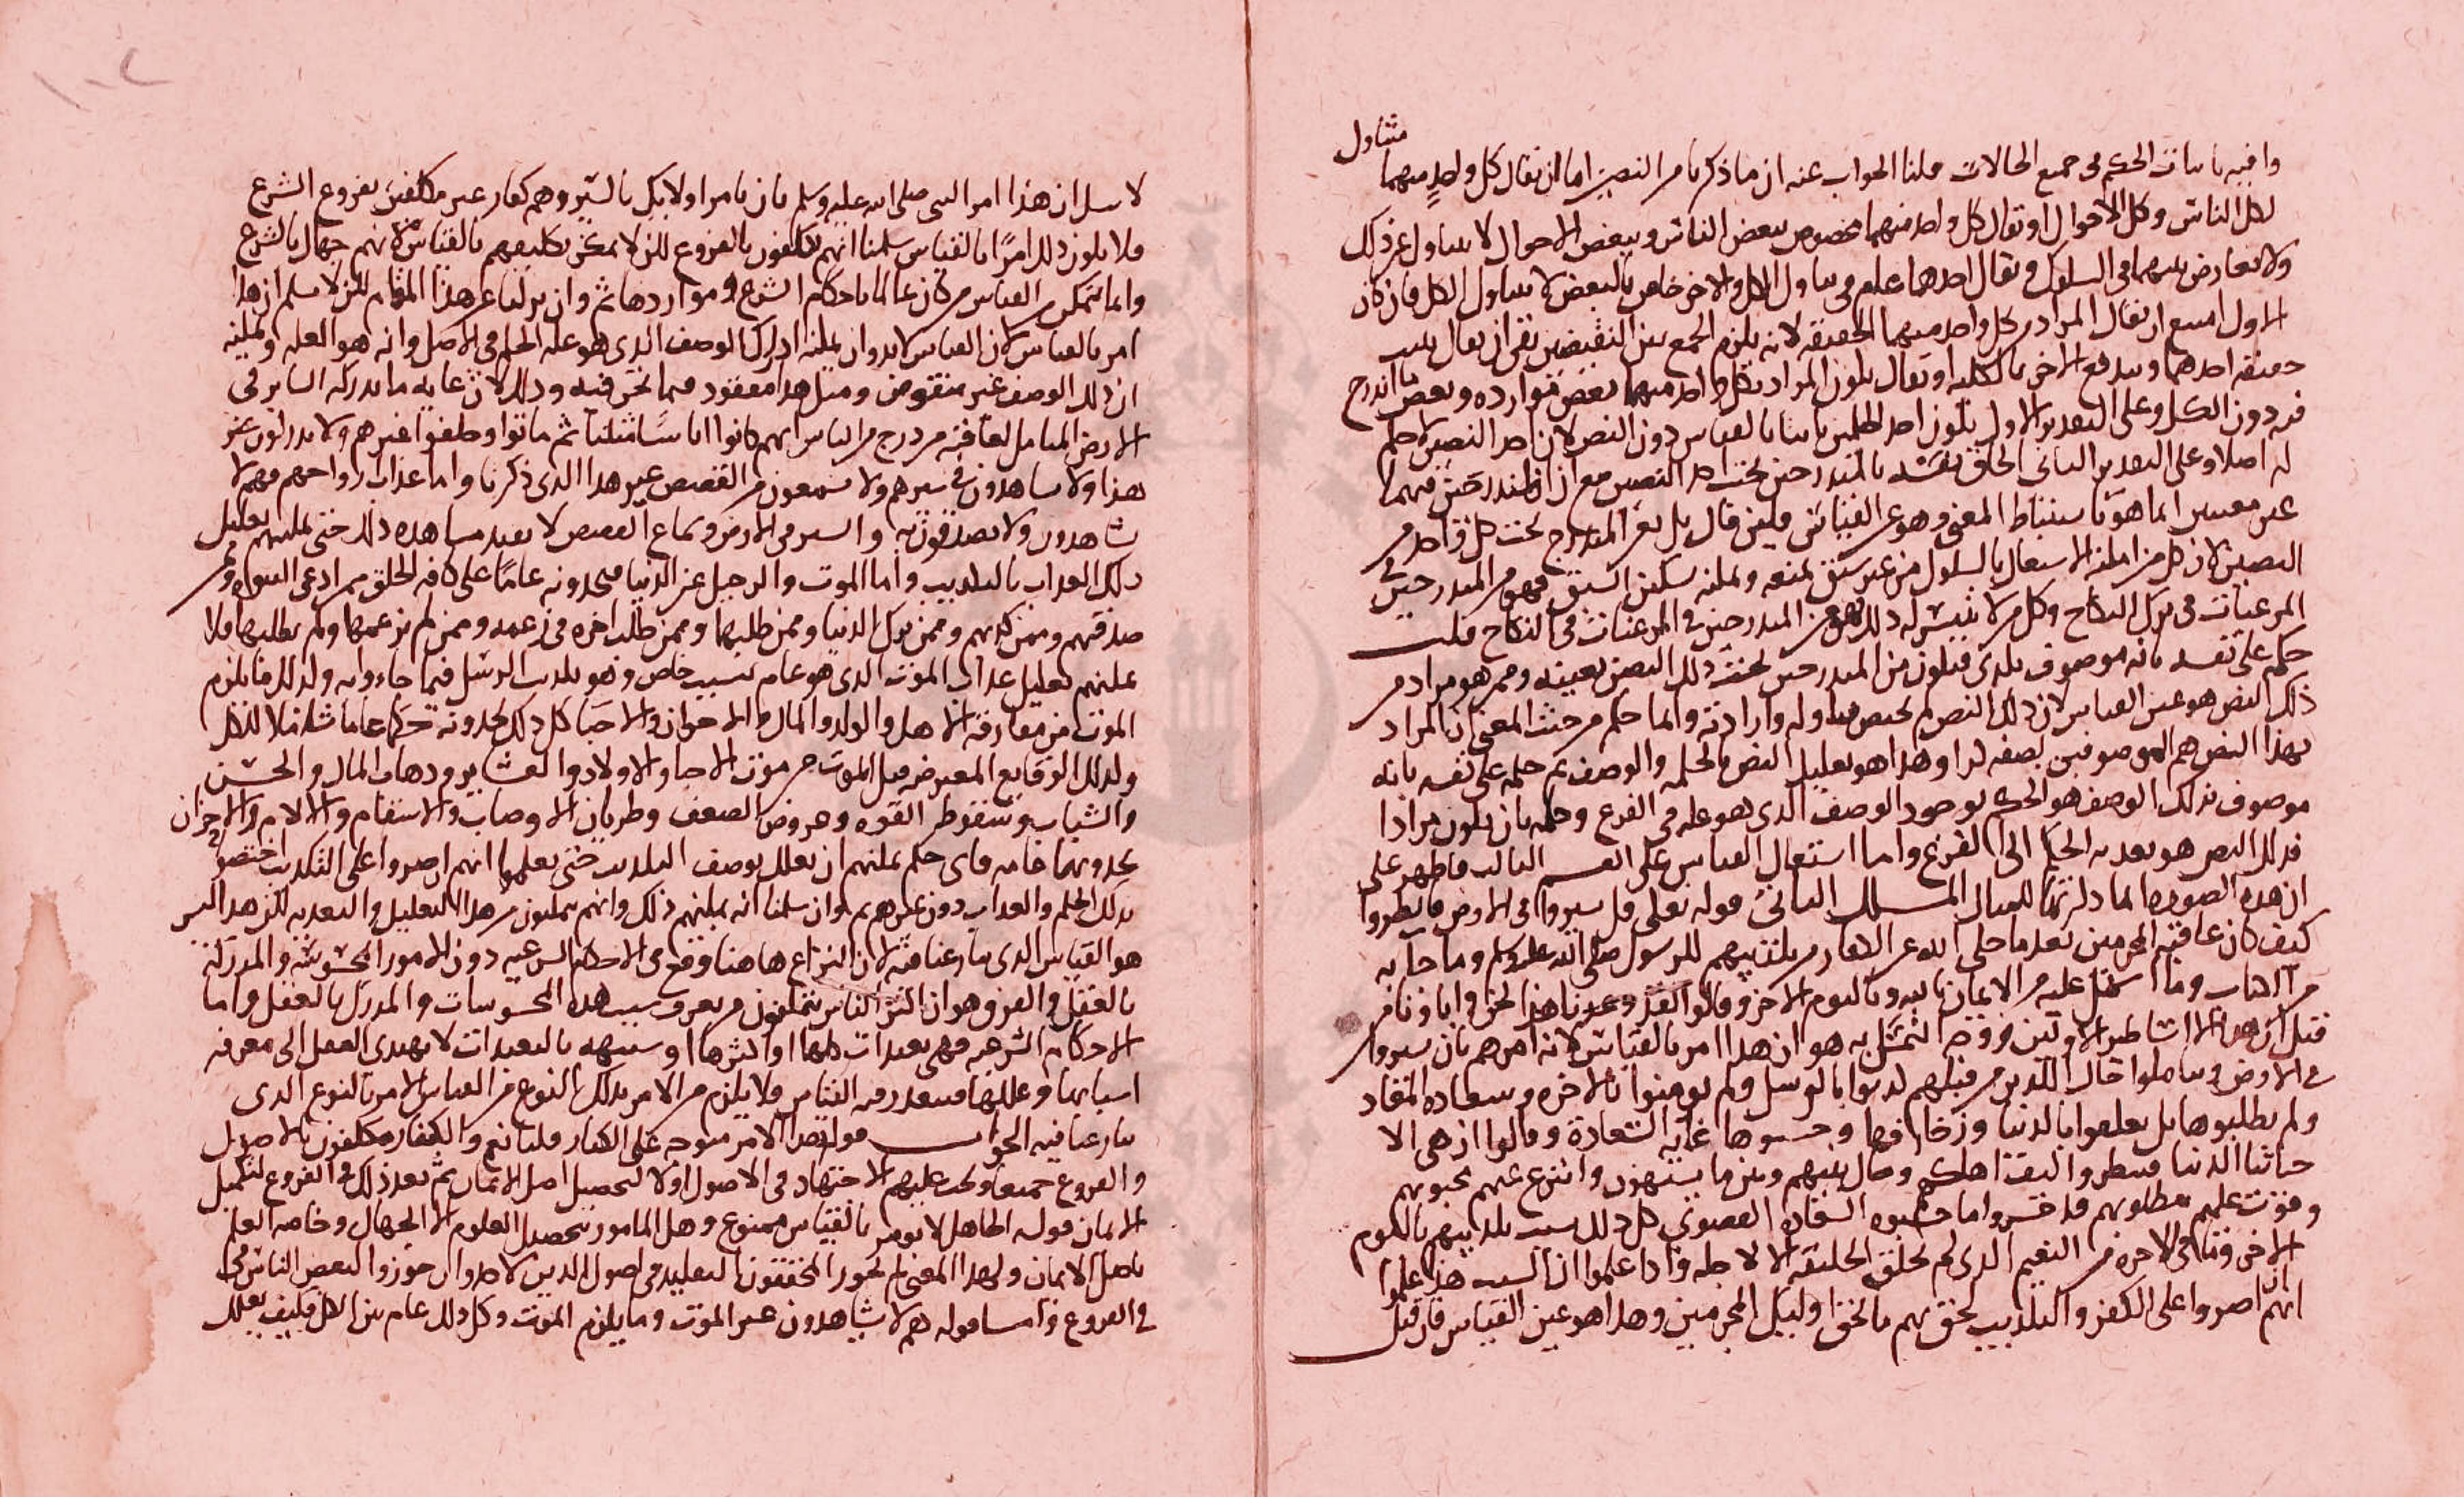 متناول
وافيه باثبات الحكم في جميع الحالات قلنا الجواب عنه ان ما ذكرنا من النصين اما ان يقال كل واحد منهما
لكل الناس وكل الاحوال او يقال كل واحد منهما مخصوص ببعض الناس وببعض الاحوال لا يتناول غير ذلك
ولا تعارض بينهما في السلوك او يقال احدهما عام في تناول الكل والاخر خاص بالبعض لا يتناول الكل فان كان
الاول امتنع ان يقال المراد من كل واحد منهما الحقيقة لانه يلزم الجمع بين النقيضين بقي ان يقال يثبت
حقيقة احدهما ويندفع الاخر بالكلية او يقال يكون المراد بكل واحد منهما بعض موارده وبعض ما اندرج
فيه دون الكل وعلى التقدير الاول يكون احد الحكمين ثابتا بالقياس دون النص لان احد النصين لا حكم
له اصلا وعلى التقدير الثاني الحاق نفسه بالمندرجين تحت احد النصين مع ان المندرجين فيهما
غير معينين انما هو باستنباط المعنى وهو عين القياس فلئن قال بل نفس المندرج تحت كل واحد من
النصين لان كل من امكنه الاشتغال بالسلوك من غير شبق يمنعه ويمكنه تسكين الشبق فهو من المندرجين في
المرغبات في ترك النكاح وكل من لا يتيسر له ذلك فهو من المندرجين في المرغبات في النكاح قلت
حكمه على نفسه بانه موصوف بكذى فيكون من المندرجين تحت ذلك النص بعينه وممن هو مراد من
ذلك النص هو عين القياس لان ذلك النص لم يختص بتناوله وارادته وانما حكم من حيث المعنى ان المراد
بهذا النص هم الموصوفين بصفة كذا وهذا هو تعليل النص بالحكمة والوصف ثم حكمه على نفسه بانه
موصوف بذلك الوصف هو الحكم بوجود الوصف الذي هو علة في الفرع وحكمه بان يكون مرادا
من ذلك النص هو تعدية الحكم الى الفرع واما استعمال القياس على القسم الثالث فاظهر على
ان هذه الصورة انما ذكرتها للمثال المسلك الثاني قوله تعالى قل سيروا في الارض فانظروا
كيف كان عاقبة المجرمين بعد ما حكى الله عن الكفار من تكذيبهم للرسول صلى الله عليه وسلم وما جاء به
من الكتاب وما اشتمل عليه من الايمان بالله وباليوم الاخر وقالوا لقد وعدنا هذا نحن واباؤنا من
قبل ان هذا الا اساطير الاولين ووجه التمسك به هو ان هذا امر بالقياس لانه امرهم بان يسيروا
في الارض ويتاملوا حال الذين من قبلهم كذبوا بالرسل ولم يومنوا بالاخرة وسعادة المعاد
ولم يطلبوها بل تعلقوا بالدنيا وزخارفها وحسبوها غاية السعادة وقالوا ان هي الا
حياتنا الدنيا فينظروا كيف اهلكهم وحال بينهم وبين ما يشتهون وانتزع عنهم محبوبهم
وفوت عليهم مطلوبهم فلا خسروا ما حسبوه السعادة القصوى كل ذلك بسبب تكذيبهم باليوم
الاخر وفنائهم في الاخرة من النعيم الذي لم يخلق الخليقة الا لاجله واذا علموا ان السبب هذا علموا
انهم ان اصروا على الكفر والتكذيب لحق بهم ما لحق اوليك المجرمين وهذا هو عين القياس فان قيل
لا نسلم ان هذا امر النبي صلى الله عليه وسلم بان يامر اوليك بالسير وهم كفار غير مكلفين بفروع الشرع
فلا يكون ذلك امرًا بالقياس سلمنا انهم مكلفون بالفروع لكن لا يمكن تكليفهم بالقياس لانهم جهال بالشرع
وانما يتمكن من القياس من كان عالما باحكام الشرع ومواردها ثم وان نزلنا عن هذا المقام لكن لا نسلم ان هذا
امر بالقياس لان القياس لا بد وان يمكنه ادراك الوصف الذي هو علة الحكم في الاصل وانه هو العلة ويمكنه
ان ذلك الوصف غير منقوض ومثل هذا مفقود فيما نحن فيه وذلك لان غاية ما يدركه السائر في
الارض المتامل لعاقبة من درج من الناس انهم كانوا اناسًا مثلنا ثم ماتوا وخلفوا غيرهم ولا يدركون غير
هذا ولا يشاهدون في سيرهم ولا يسمعون من القصص غير هذا الذي ذكرنا واما عذاب ارواحهم فهم لا
يشاهدون ولا يصدقون به والسير في الارض وسماع القصص لا يفيد مشاهدة ذلك حتى يمكنهم تعليل
ذلك العذاب بالتكذيب واما الموت والرحيل عن الدنيا فيجدونه عامًا على كافة الخلق ممن ادعى النبوة ومن
صدقهم وممن كذبهم وممن ترك الدنيا وممن طلبها وممن طلب اخرة في زعمه وممن لم يزعمها ولم يطلبها فلا
يمكنهم تعليل عذاب الموت الذي هو عام بسبب خاص وهو تكذيب الرسل فيما جاءوا به وكذلك ما يلزم
الموت من مفارقة الاهل والولد والمال والاخوان والاحبا كل ذلك يجدونه حكما عاما شاملا للكل
وكذلك الوقايع المعترضة قبل الموت من موت الاحبا والاولاد والعشاير وذهاب المال والحسن
والشباب وسقوط القوة وعروض الضعف وطريان الاوصاب والاسقام والالام والاحزان
يجدونها عامة فاي حكم يمكنهم ان يعلل بوصف التكذيب حتى يعلموا انهم ان اصروا على التكذيب اختصوا
بذلك الحكم والعذاب دون غيرهم ثم وان سلمنا انه يمكنهم ذلك وانهم يتمكنون من هذا التعليل والتعدية لكن هذا ليس
هو القياس الذي تنازعنا فيه لان النزاع ها هنا وقع في الاحكام الشرعية دون الامور المحسوسة والمدركة
بالعقل والفرق هو ان اكثر الناس يتمكنون من تعرف سبب هذه المحسوسات والمدرك بالعقل واما
الاحكام الشرعية فهي تعبدات كلها او اكثرها او شبيهة بالتعبدات لا يهتدي العقل الى معرفة
اسبابها وعللها فيتعذر فيه القياس فلا يلزم من الامر بذلك النوع من القياس الامر بالنوع الذي
تنازعنا فيه الجواب قوله هذا الامر متوجه على الكفار قلنا نعم والكفار مكلفون بالاصول
والفروع جميعا ويجب عليهم الاجتهاد في الاصول اولا لتحصيل اصل الايمان ثم بعد ذلك في الفروع لتكميل
الايمان قوله الجاهل لا يومر بالقياس ممنوع وهل المامور بتحصيل العلوم الا الجهال وخاصة العلم
باصل الايمان ولهذا المعنى لم يجوز المحققون التقليد في اصول الدين لاحد وان جوزوا لبعض الناس في
في الفروع واما قوله هم لا يشاهدون غير الموت وما يلزم الموت وكل ذلك عام بين الكل فكيف يعلل